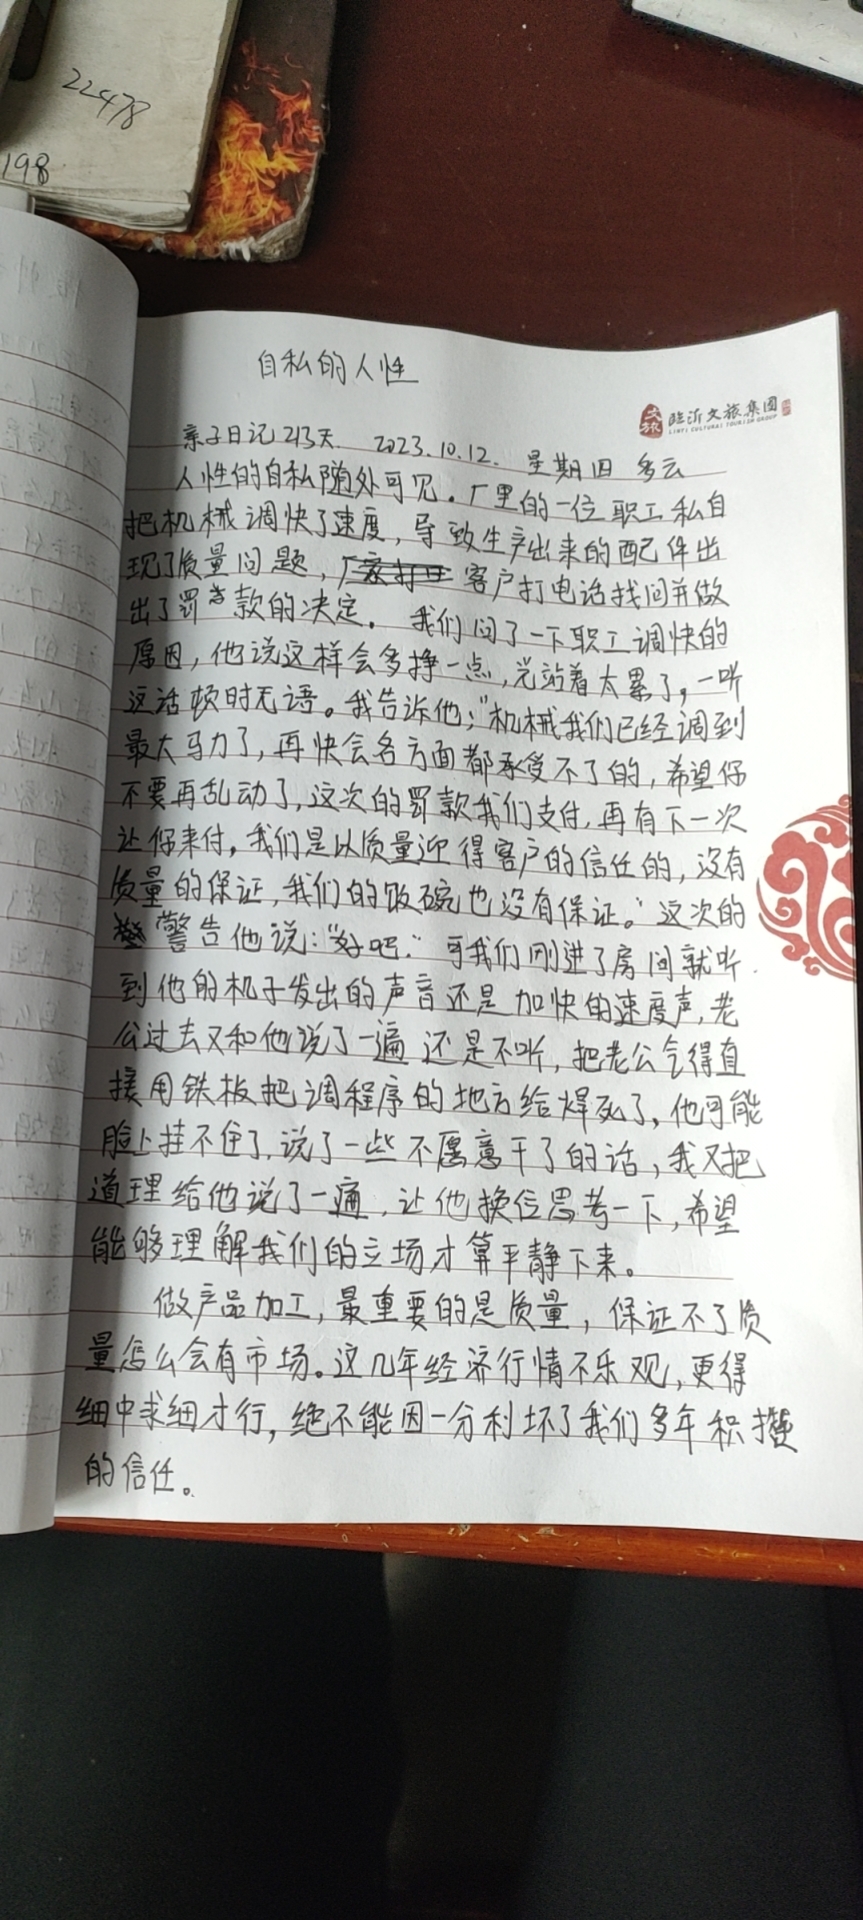 22478
198
自私的人性
文旅 临沂文旅集团
LINYI CULTURAL TOURISM GROUP
亲子日记213天 2023.10.12. 星期四 多云
人性的自私随处可见。厂里的一位职工私自
把机械调快了速度，导致生产出来的配件出
现了质量问题，客户打电话找问并做
出了罚款的决定。我们问了一下职工调快的
原因，他说这样会多挣一点，光站着太累了，一听
这话顿时无语。我告诉他："机械我们已经调到
最大马力了，再快会各方面都承受不了的，希望你
不要再乱动了，这次的罚款我们支付，再有下一次
让你来付，我们是以质量迎得客户的信任的，没有
质量的保证，我们的饭碗也没有保证。"这次的
警告他说："好吧." 可我们刚进了房间就听
到他的机子发出的声音还是加快的速度声，老
公过去又和他说了一遍还是不听，把老公气得直
接用铁板把调程序的地方给焊死了，他可能
脸上挂不住了，说了一些不愿意干了的话，我又把
道理给他说了一遍，让他换位思考一下，希望
能够理解我们的立场才算平静下来。
做产品加工，最重要的是质量，保证不了质
量怎么会有市场。这几年经济行情不乐观，更得
细中求细才行，绝不能因一分利坏了我们多年积攒
的信任。